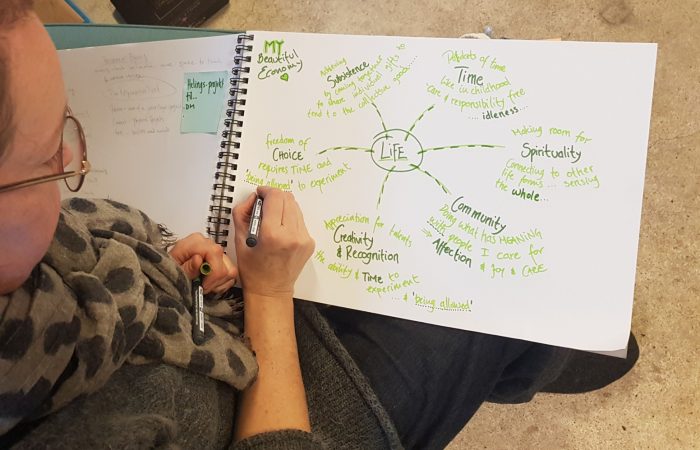 Holings-projekt
til...
DM
MY
Beautiful
Economy
LiFE
Achieving
Subsistence
coming together
to share individual gifts to
tend to the collective good.....
Depots of time
Time
like in childhood
care & responsibility free
.... idleness...
Making room for
Spirituality
Connecting to other
life forms... sensing
the whole...
Community
Doing what has MEANING
with people I care for
Affection & joy & CARE
Appreciation for talents
Creativity
& Recognition
the ability & Time to
experiment
... & 'being allowed'
freedom of
CHOICE
requires TIME and
'being allowed' to experiment